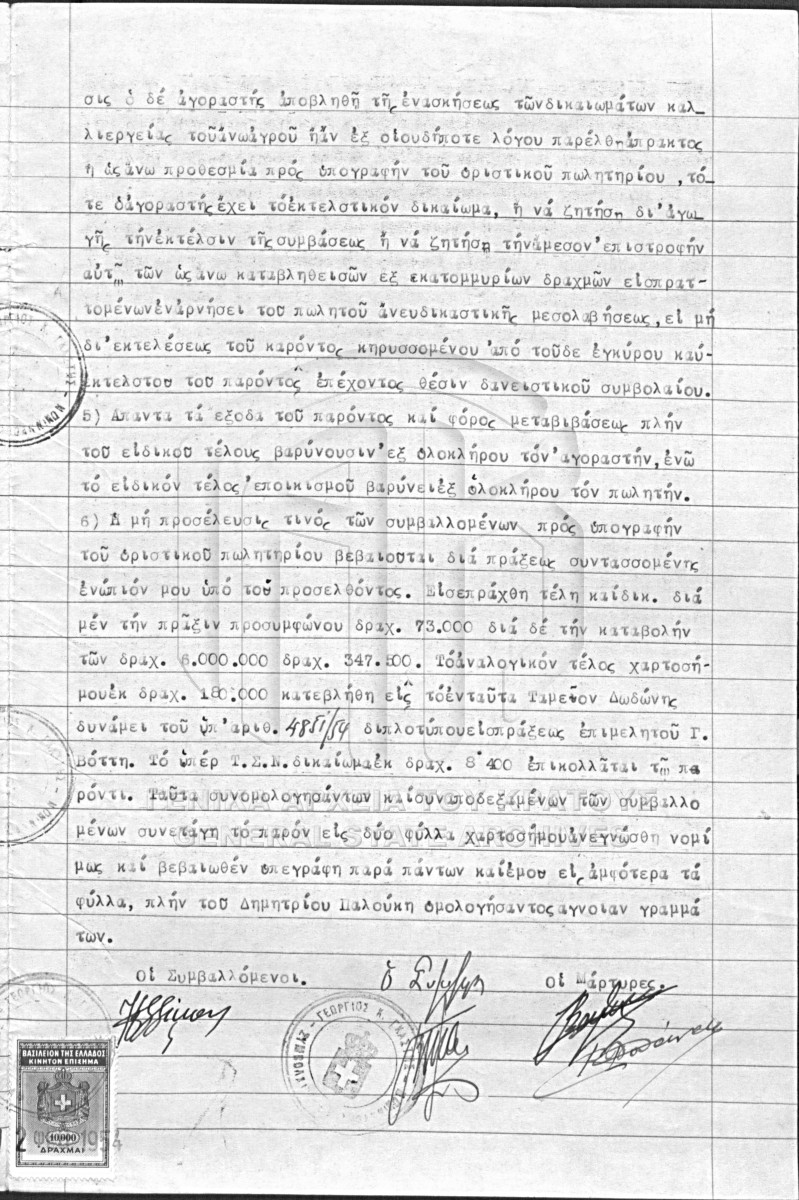 σις ὁ δέ ἀγοραστής ἀποβληθῇ τῆς ἐνασκήσεως τῶνδικαιωμάτων καλ-
λιεργείας τοῦἄνωἀγροῦ ἤἄν ἐξ οἱουδήποτε λόγου παρέλθῃἄπρακτος
ἡ ὡςἄνω προθεσμία πρός ὑπογραφήν τοῦ ὁριστικοῦ πωλητηρίου ,τό-
τε ὁἀγοραστής ἔχει τόἐκτελστικόν δικαίωμα, ἤ νά ζητήσῃ δι'ἀγω
γῆς τήνἐκτέλσιν τῆςσυμβάσεως ἤ νά ζητήσῃ τήνἄμεσον'επιστροφήν
αὐτῷ τῶν ὡς ἄνω καταβληθεισῶν εξ εκατομμυρίων δραχμῶν εἰσπρατ-
τομένωνἐνἀρνήσει τοῦ πωλητοῦ ἄνευδικαστικῆς μεσολαβήσεως, εἰ μή
δι'εκτελέσεως τοῦ καρόντος κηρυσσομένου 'από τοῦδε ἐγκύρου καύ-
ἐκτελστου τοῦ παρόντος ἐπέχοντος θέσιν δανειστικοῦ συμβολαίου.
5) Απαντα τά εξοδα τοῦ παρόντος καί φόρος μεταβιβάσεως πλήν
τοῦ εἰδικοῦ τέλους βαρύνουσιν'εξ ὁλοκλήρου τόν'αγοραστήν, ἐνῶ
τό εἰδικόν τέλος 'εποικισμοῦ βαρύνειἐξ ὁλοκλήρου τόν πωλητήν.
6) Α μή προσέλευσις τινός τῶν συμβαλλομένων πρός ὑπογραφήν
τοῦ ὁριστικοῦ πωλητηρίου βεβαιοῦται διά πράξεως συντασσομένης
ἐνώπιόν μου ὑπό τοῦ προσελθόντος. Εἰσεπράχθη τέλη καίδικ. διά
μέν την πρᾶξιν προσυμφώνου δραχ. 73.000 διά δέ τήν καταβολήν
τῶν δραχ. 6.000.000 δραχ. 347.500. Τόἀναλογικόν τέλος χαρτοσή-
μουἐκ δραχ. 180.000 κατεβλήθη εἰς τόἐνταῦτα Ταμεῖον Δωδώνης
δυνάμει τοῦ ὑπ'αριθ. 4851/54 διπλοτύπουεἰσπράξεως ἐπιμελητοῦ Γ.
Βόττη. Τό ὑπέρ Τ.Σ.Ν.δικαίωμαἐκ δραχ. 8'400 ἐπικολλᾶται τῷ πα
ρόντι. Ταῦτα συνομολογησάντων καίσυναποδεξαμένων τῶν συμβαλλο
μένων συνετάγη τό παρόν εἰς δύο φύλλα χαρτοσήμουἀνεγνώσθη νομί
μως καί βεβαιωθέν ὑπεγράφη παρά πάντων καίἐμοῦ εἰς ἀμφότερα τά
φύλλα, πλήν τοῦ Δημητρίου Παλούκη ὁμολογήσαντοςαγνοιαν γραμμά
των.
οἱ Συμβαλλόμενοι. ὁ οἱ Μάρτυρες.
ΓΕΝΙΚΑ ΑΡΧΕΙΑ ΤΟΥ ΚΡΑΤΟΥΣ
GENERAL STATE ARCHIVES
ΒΑΣΙΛΕΙΟΝ ΤΗΣ ΕΛΛΑΔΟΣ
ΚΙΝΗΤΟΝ ΕΠΙΣΗΜΑ
10.000
ΔΡΑΧΜΑΙ
1954